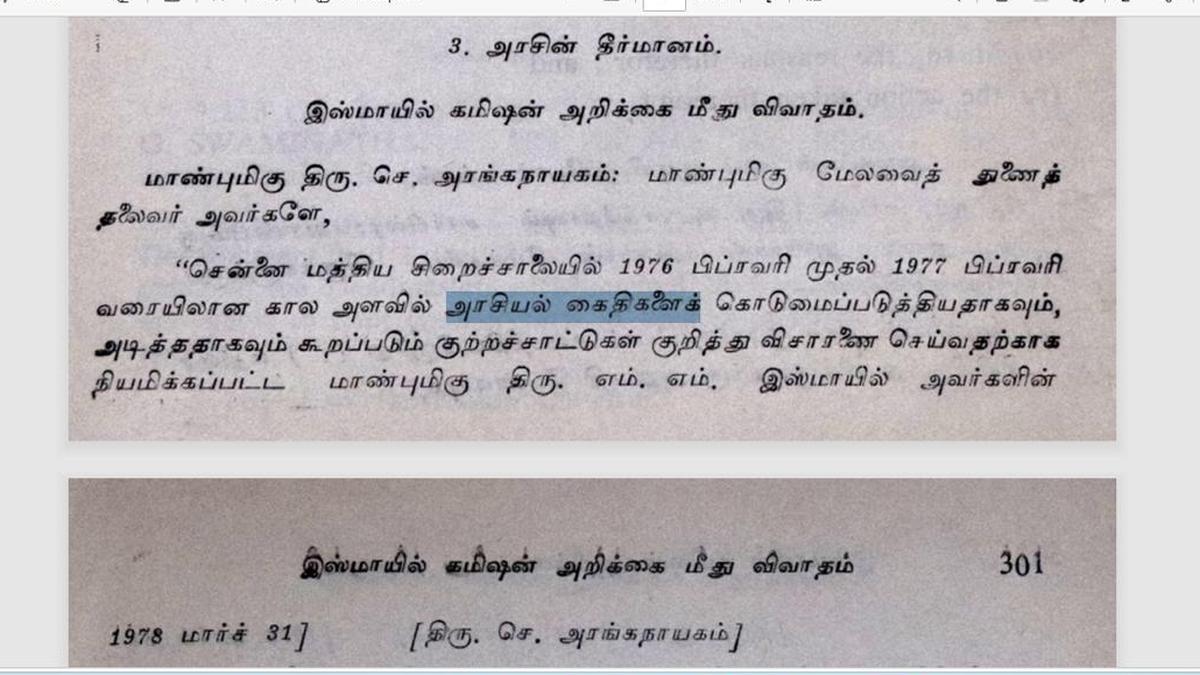 3. அரசின் தீர்மானம்.
இஸ்மாயில் கமிஷன் அறிக்கை மீது விவாதம்.
மாண்புமிகு திரு. செ. அரங்கநாயகம்: மாண்புமிகு மேலவைத் துணைத்
தலைவர் அவர்களே,
“சென்னை மத்திய சிறைச்சாலையில் 1976 பிப்ரவரி முதல் 1977 பிப்ரவரி
வரையிலான கால அளவில் அரசியல் கைதிகளைக் கொடுமைப்படுத்தியதாகவும்,
அடித்ததாகவும் கூறப்படும் குற்றச்சாட்டுகள் குறித்து விசாரணை செய்வதற்காக
நியமிக்கப்பட்ட மாண்புமிகு திரு. எம். எம். இஸ்மாயில் அவர்களின்
இஸ்மாயில் கமிஷன் அறிக்கை மீது விவாதம் 301
1978 மார்ச் 31] [திரு. செ. அரங்கநாயகம்]